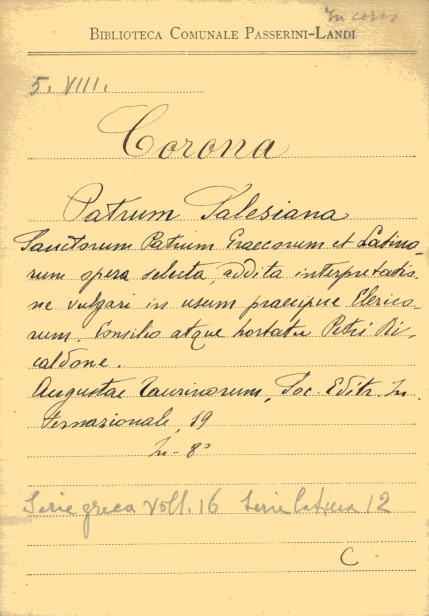 In corso
BIBLIOTECA COMUNALE PASSERINI-LANDI
5. VIII.
Corona
Patrum Salesiana
Sanctorum Patrum Graecorum et Latino-
rum opera selecta, addita interpretatio-
ne vulgari in usum praecipue Clerico-
rum. Consilio atque hortatu Petri Ri-
caldone.
Augustae Taurinorum, Soc. Editr. In-
ternazionale, 19
In-8°
Serie greca voll. 16 Serie latina 12
C